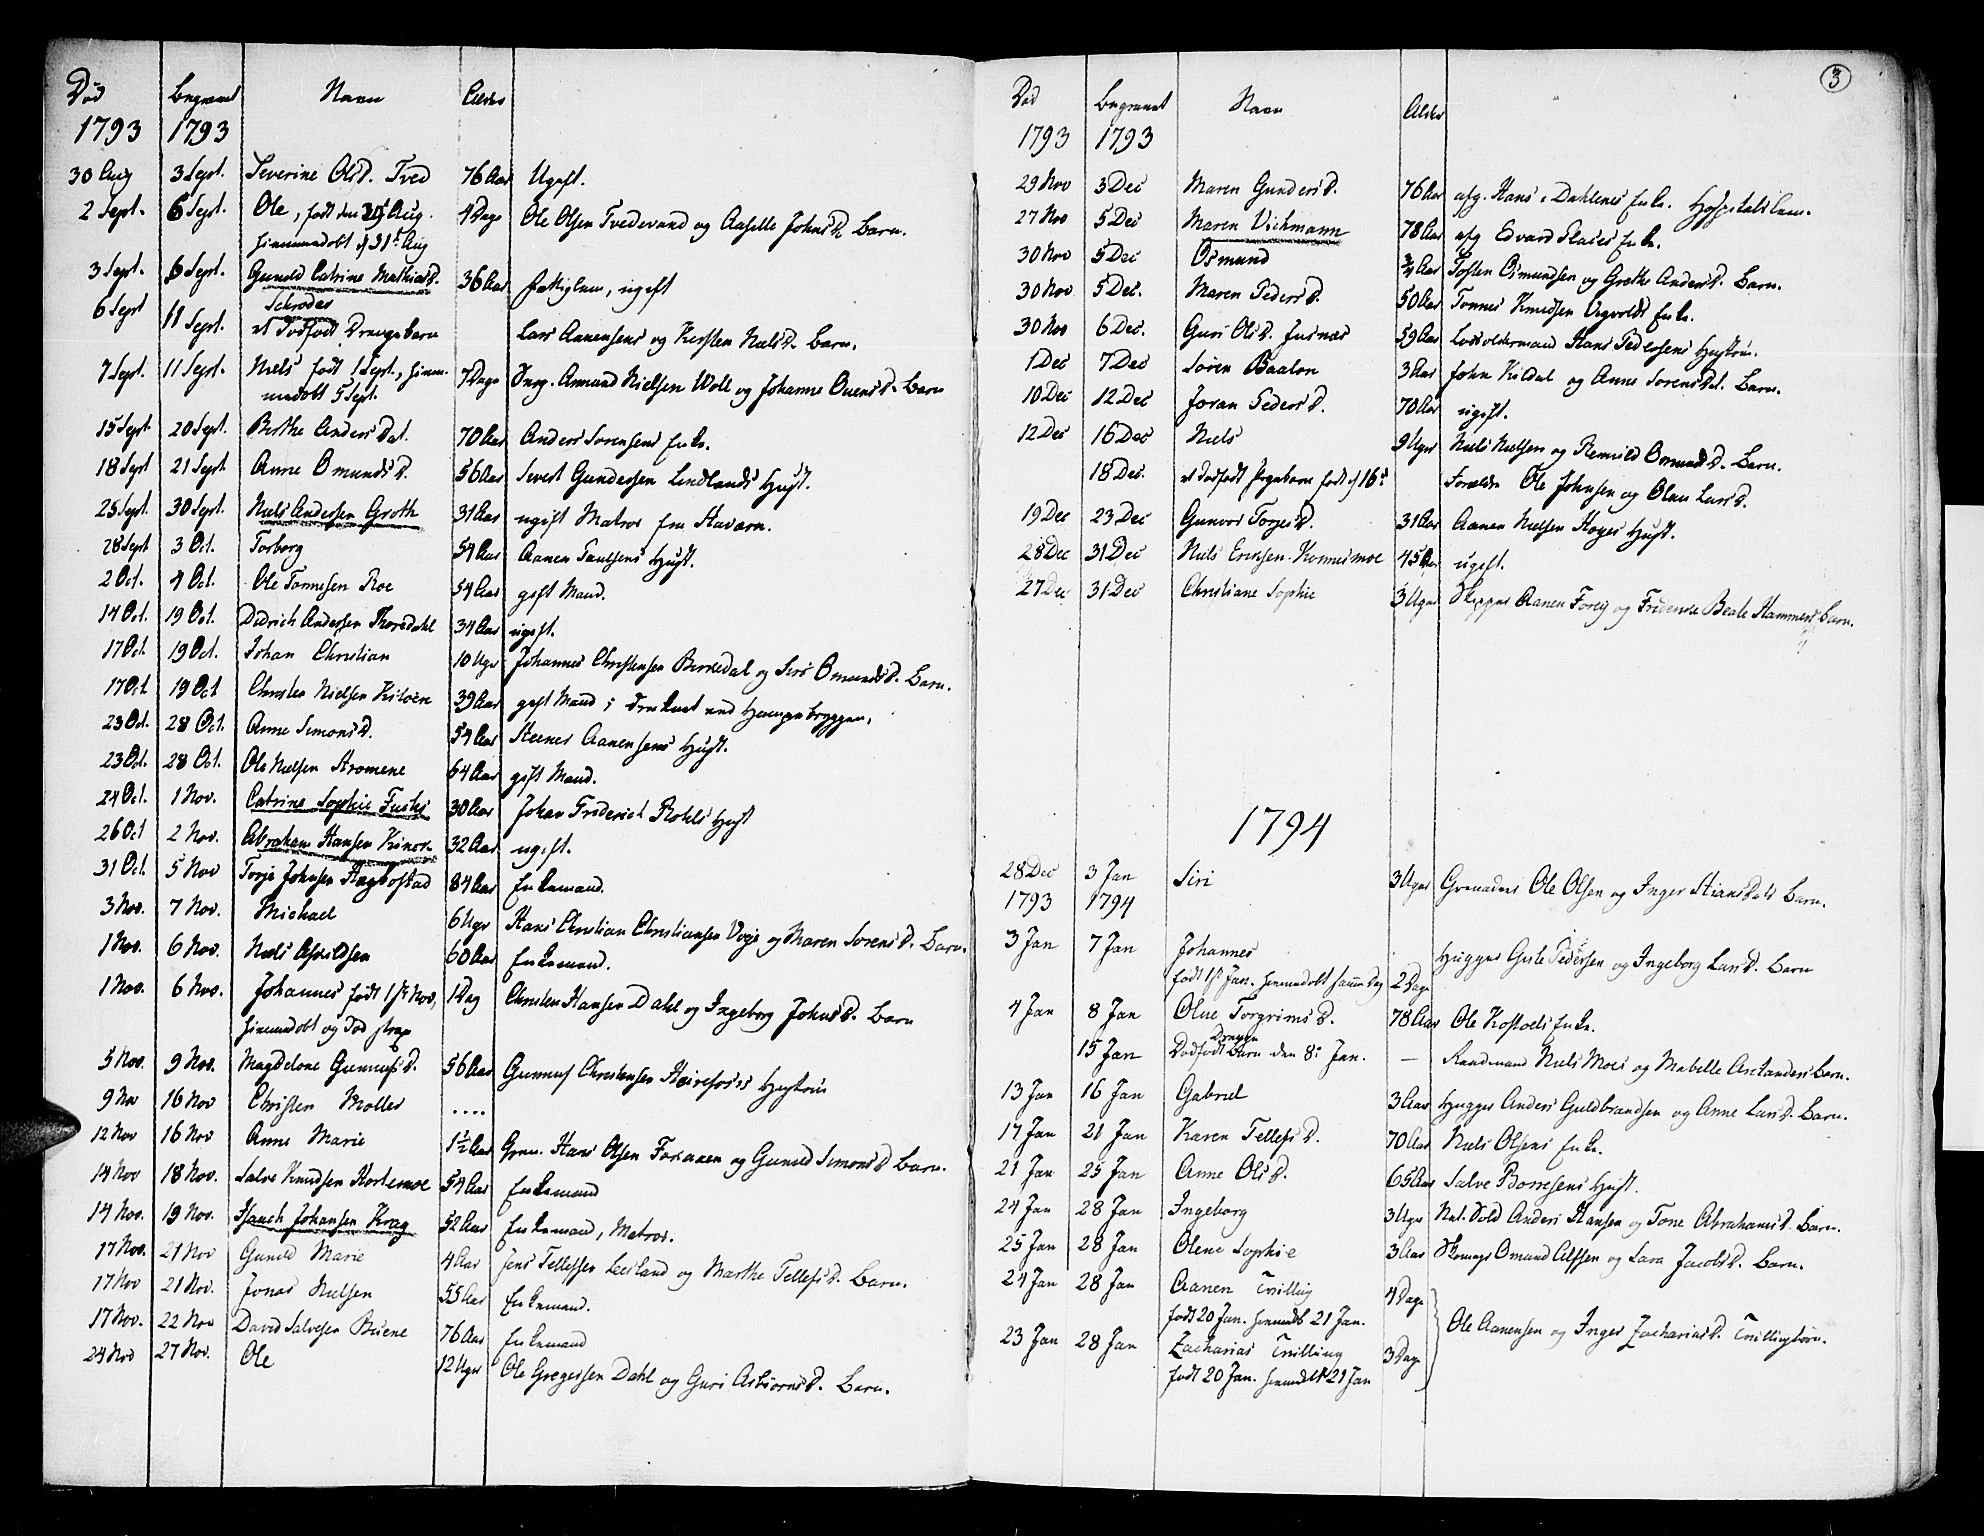 Død Begravet Navn Alder
1793 1793
30 Aug 3 Sept. Severine Olsd. Tved 76 Aar Ugift.
2 Sept. 6 Sept. Ole, født den Aug. 4 Dage Ole Olsen Tvedevand og Aaselle Johnsd. Barn.
hiemmedøbt d 31t Aug
3 Sept. 6 Sept. Gunild Catrine Mathiasd. 36 Aar fattiglem, ugift
Schrøder
6 Sept 11 Sept. et Dødfødt Drengebarn Lars Aanensens og Kirsten Nielsd. Barn.
7 Sept. 11 Sept. Niels født 1 Sept., hiem- 7 Dage Amund Nielsen Woll og Johanne Ouensd. Barn
medøbt 5 Sept.
15 Sept 20 Sept. Berthe Anders Dat. 70 Aar Anders Sørensens Enke.
18 Sept 21 Sept Anne Omundsd. 56 Aar Sivert Gundersen Lindlands Hust.
25 Sept. 30 Sept. Niels Andersen Groth 31 Aar ugift Matros fra Stavern.
28 Sept 3 Oct. Torborg 54 Aar Aanen Paulsens Hust.
2 Oct. 4 Oct. Ole Tønnesen Roe 54 Aar gift Mand.
14 Oct. 19 Oct. Didrich Andersen Kordahl 34 Aar ugift.
17 Oct. 19 Oct. Johan Christian 10 Uger Johannes Christensen Birkedal og Siri Omundsd. Barn.
17 Oct 19 Oct Christen Nielsen 39 Aar gift Mand; druknet ved
23 Oct. 28 Oct. Anne Simonsd. 54 Aar Steener Aanensens Hust.
23 Oct. 28 Oct. Ole Nielsen Strømene 64 Aar gift Mand.
24 Oct. 1 Nov. Catrine Sophie Fuchs 30 Aar Johan Friderich Rohls Hust
26 Oct 2 Nov. Abraham Hansen 32 Aar ugift.
31 Oct. 5 Nov Torje Johnsen Hægbostad 84 Aar Enkemand.
3 Nov. 7 Nov. Michael 6 Uger Hans Christian Christiansen Voje og Maren Sørensd. Barn.
1 Nov. 6 Nov. Niels Asvildsen 60 Aar Enkemand.
1 Nov. 6 Nov. Johannes født 1ste Nov, 1 Dag Christen Hansen Dahl og Ingeborg Johnsd. Barn
hiemmedøbt og Død strax
5 Nov. 9 Nov. Magdelone Gunnufsd. 56 Aar Gunnuf Christensen Hustrue
9 Nov 16 Nov Christen Møller ....
12 Nov 16 Nov Anne Marie 1½ Aar Gren. Hans Olsen og Gunild Simonsd Barn.
14 Nov 18 Nov. Salve Knudsen Hortemoe 54 Aar Enkemand
14 Nov. 19 Nov. Isaach Johansen Krag 52 Aar Enkemand, Matros.
17 Nov. 21 Nov Gunild Marie 4 Aar Jens Tellefsen Leeland og Marthe Tellefsd. Barn.
17 Nov 21 Nov. Jonas Nielsen 55 Aar Enkemand.
17 Nov. 22 Nov David Salvesen Buene 76 Aar Enkemand
24 Nov 27 Nov. Ole 12 Uger Ole Gregersen Dahl og Guri Asbiornsd. Barn.
3
Død Begravet Navn Alder
1793 1793
29 Nov 3 Dec Maren Gundersd. 76 Aar afg. Hans Dahlenes Enke. Hospitalslem.
27 Nov 5 Dec Maren Vichmann 78 Aar afg Edvard Enke.
30 Nov 5 Dec Osmund ¾ Aar Tosten Osmundsen og Grethe Andersd. Barn.
30 Nov 5 Dec. Maren Pedersd. 50 Aar Tønnes Knudsen Vigvolds Enke.
30 Nov 6 Dec. Guri Olsd. 59 Aar Hans Pedersens Hustrue.
1 Dec 7 Dec Søren Baalon 3 Aar John Kildal og Anne Sørensdat. Barn.
10 Dec 12 Dec Joran Pedersd. 70 Aar ugift.
12 Dec 16 Dec Niels 9 Uger Niels Nielsen og Omundsd. Barn.
18 Dec. et dødfødt Pigebarn født d 16d Forældre Ole Johnsen og Olau Larsd.
19 Dec 23 Dec Gunvor Torjesd. 31 Aar Aanen Nielsen Høyes Hust.
28 Dec 31 Dec Niels Eriksen Konnesmoe 45 Aar ugift.
27 Dec 31 Dec Christiane Sophie 3 Uger Skipper Aanen Foreig og Friderice Beate Hammers Barn.
1794
28 Dec 3 Jan Siri 3 Uger Grenadeer Ole Olsen og Inger Stiansdats Barn.
1793 1794
3 Jan 7 Jan Johannes Hugger Pedersen og Ingeborg Larsd. Barn
født 1st Jan. hiemmedøbt samme Dag 2 Dage
4 Jan 8 Jan Olue Torgrimsd. 78 Aar Ole Enke.
15 Jan Dødfødt Drenge Barn den 8: Jan. — Raadmand Niels Moes og Mabelle Arntsanders Barn.
13 Jan 16 Jan Gabriel 3 Aar Hugger Anders Guldbrandsen og Anne Larsd. Barn.
17 Jan 21 Jan Karen Tellefsd. 70 Aar Niels Olsens Enke.
21 Jan 25 Jan Anne Olsd. 65 Aar Salve Børresens Hust.
24 Jan 28 Jan Ingeborg 3 Uger Nat. Sold Anders Hansen og Tone Abrahamsd. Barn.
25 Jan 28 Jan Olene Sophie 3 Aar Omund Alfsen og Sara Jacobsd. Barn.
24 Jan 28 Jan Aanen Tvilling 4 Dage
født 20 Jan. hiemmedøbt 21 Jan. Ole Aanensen og Inger Zachariasd. Tvillingbørn.
23 Jan 28 Jan Zacharias Tvilling 3 Dage
født 20 Jan. hiemmedøbt 21 Jan